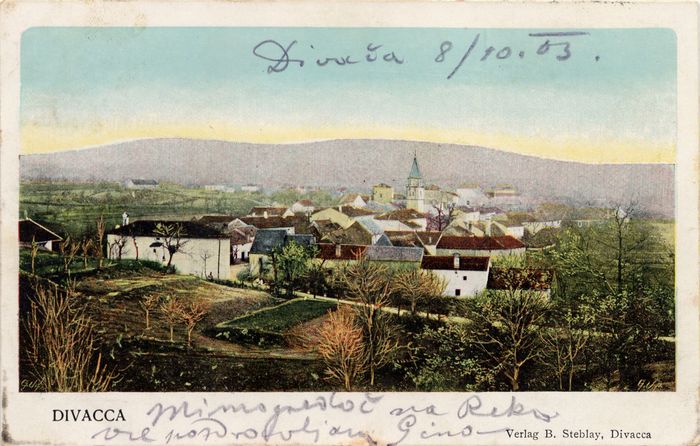 Divača 8/10.03.
DIVACCA
Mimogredoč na Reko
vse pozdravljam
Verlag B. Steblay, Divacca